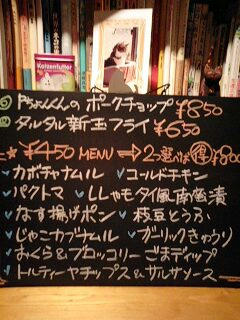 Katzenfutter
⑥ のポークチョップ ¥850
タルタル新玉フライ ¥650
☆ ¥450 MENU ⇒ 2つ選べば 得 ¥800
✓カボチャナムル ✓コールドチキン
✓パクトマ ✓ししゃもタイ風南蛮漬
✓なす揚げポン ✓枝豆とうふ
✓じゃこカブナムル ✓ガーリックきゅうり
✓おくら&ブロッコリーごまディップ
✓トルティーヤチップス&サルサソース